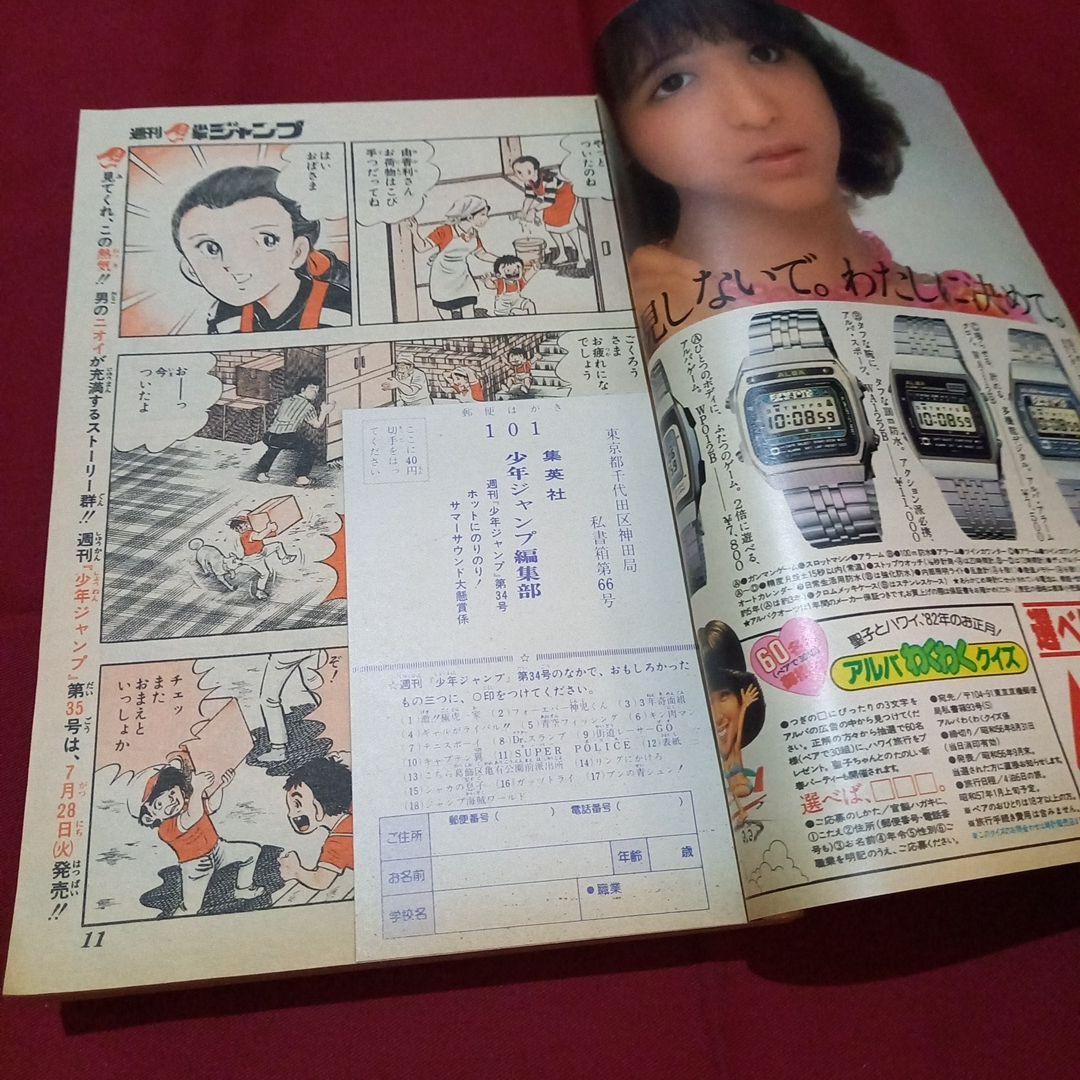 週刊少年ジャンプ
見てくれ、この熱気!!男のニオイが充満するストーリー群!!週刊『少年ジャンプ』第35号は、7月28日(火)発売!!
やっと
ついたのね
由香利さん
お荷物はこび
手つだってね
はい
おばさま
ごくろう
さま
お疲れにな
ったでしょう
おーっ
今
ついたよ
ぞ!
チェッ
また
おまえと
いっしょか
11
郵便はがき
101
ここに40円
切手をはっ
てください
東京都千代田区神田局
私書箱第66号
集英社
少年ジャンプ編集部
週刊『少年ジャンプ』第34号
ホットにのりのり!
サマーサウンド大懸賞係
☆週刊『少年ジャンプ』第34号のなかで、おもしろかった
もの三つに、○印をつけてください。
(1)激!!極虎一家 (2)フォーエバー神児くん (3)3年奇面組
(4)ギャルがライバル!! (5)青下フィッシング (6)キン肉マン
(7)テニスボーイ (8)Dr.スランプ (9)街道レーサーGO
(10)キャプテン翼 (11)SUPER POLICE (12)表紙
(13)こちら葛飾区亀有公園前派出所 (14)リングにかけろ
(15)シャカの息子 (16)ガッツトライ (17)ブンの青シュン!
(18)ジャンプ海賊ワールド
郵便番号( ) 電話番号( )
ご住所
お名前
年齢 歳
学校名
●職業
見しないで。わたしに決めて。
Ⓐひとつのボディに、ふたつのゲーム。2倍に遊べる、
アルバ・ゲーム。WP012B ¥7,800
Ⓑタフな腕に、タフな顔=防水。アクション派必携、
アルバ・スポーツ。WA122B ¥11,000
ALBA
10:08 59
ALBA
10:08 59
聖子とハワイ、'82年のお正月!
60名
アルバわくわくクイズ
●つぎの□にぴったりの3文字を
アルバの広告の中から見つけてくだ
さい。正解の方々から抽選で60名
様(ペアで30組)に、ハワイ旅行をプ
レゼント。聖子ちゃんとのたのしい新
春パーティーも開催されます。
選べば、□□□。
●ご応募のしかた/官製ハガキに、
①こたえ②住所(郵便番号・電話番
号も)③お名前④年令⑤性別⑥ご
職業を明記のうえ、ご応募ください。
●宛先/〒104-91東京京橋郵便
局私書箱93号(S)
アルバわくわくクイズ係
●締切り/昭和56年8月31日
(当日消印有効)
●発表/昭和56年9月末。
当選された方に直接お知らせします。
●旅行日程/4泊6日の旅。
昭和57年1月上旬予定。